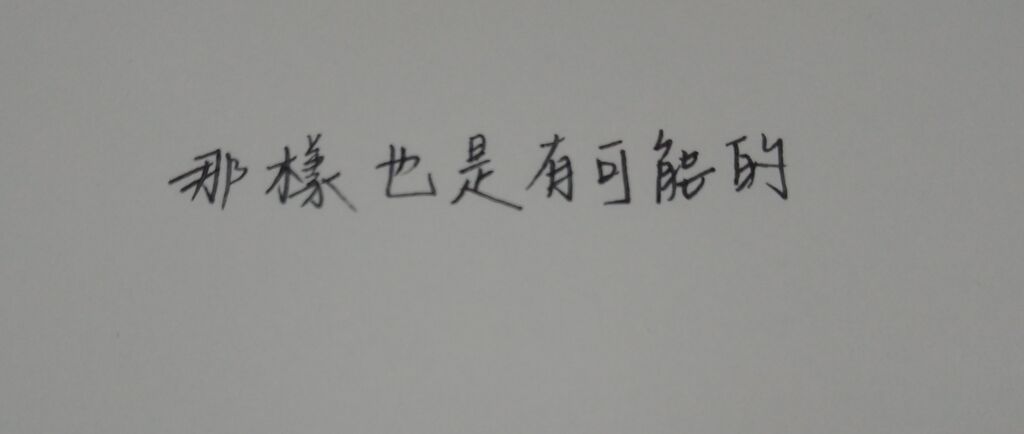 那樣也是有可能的